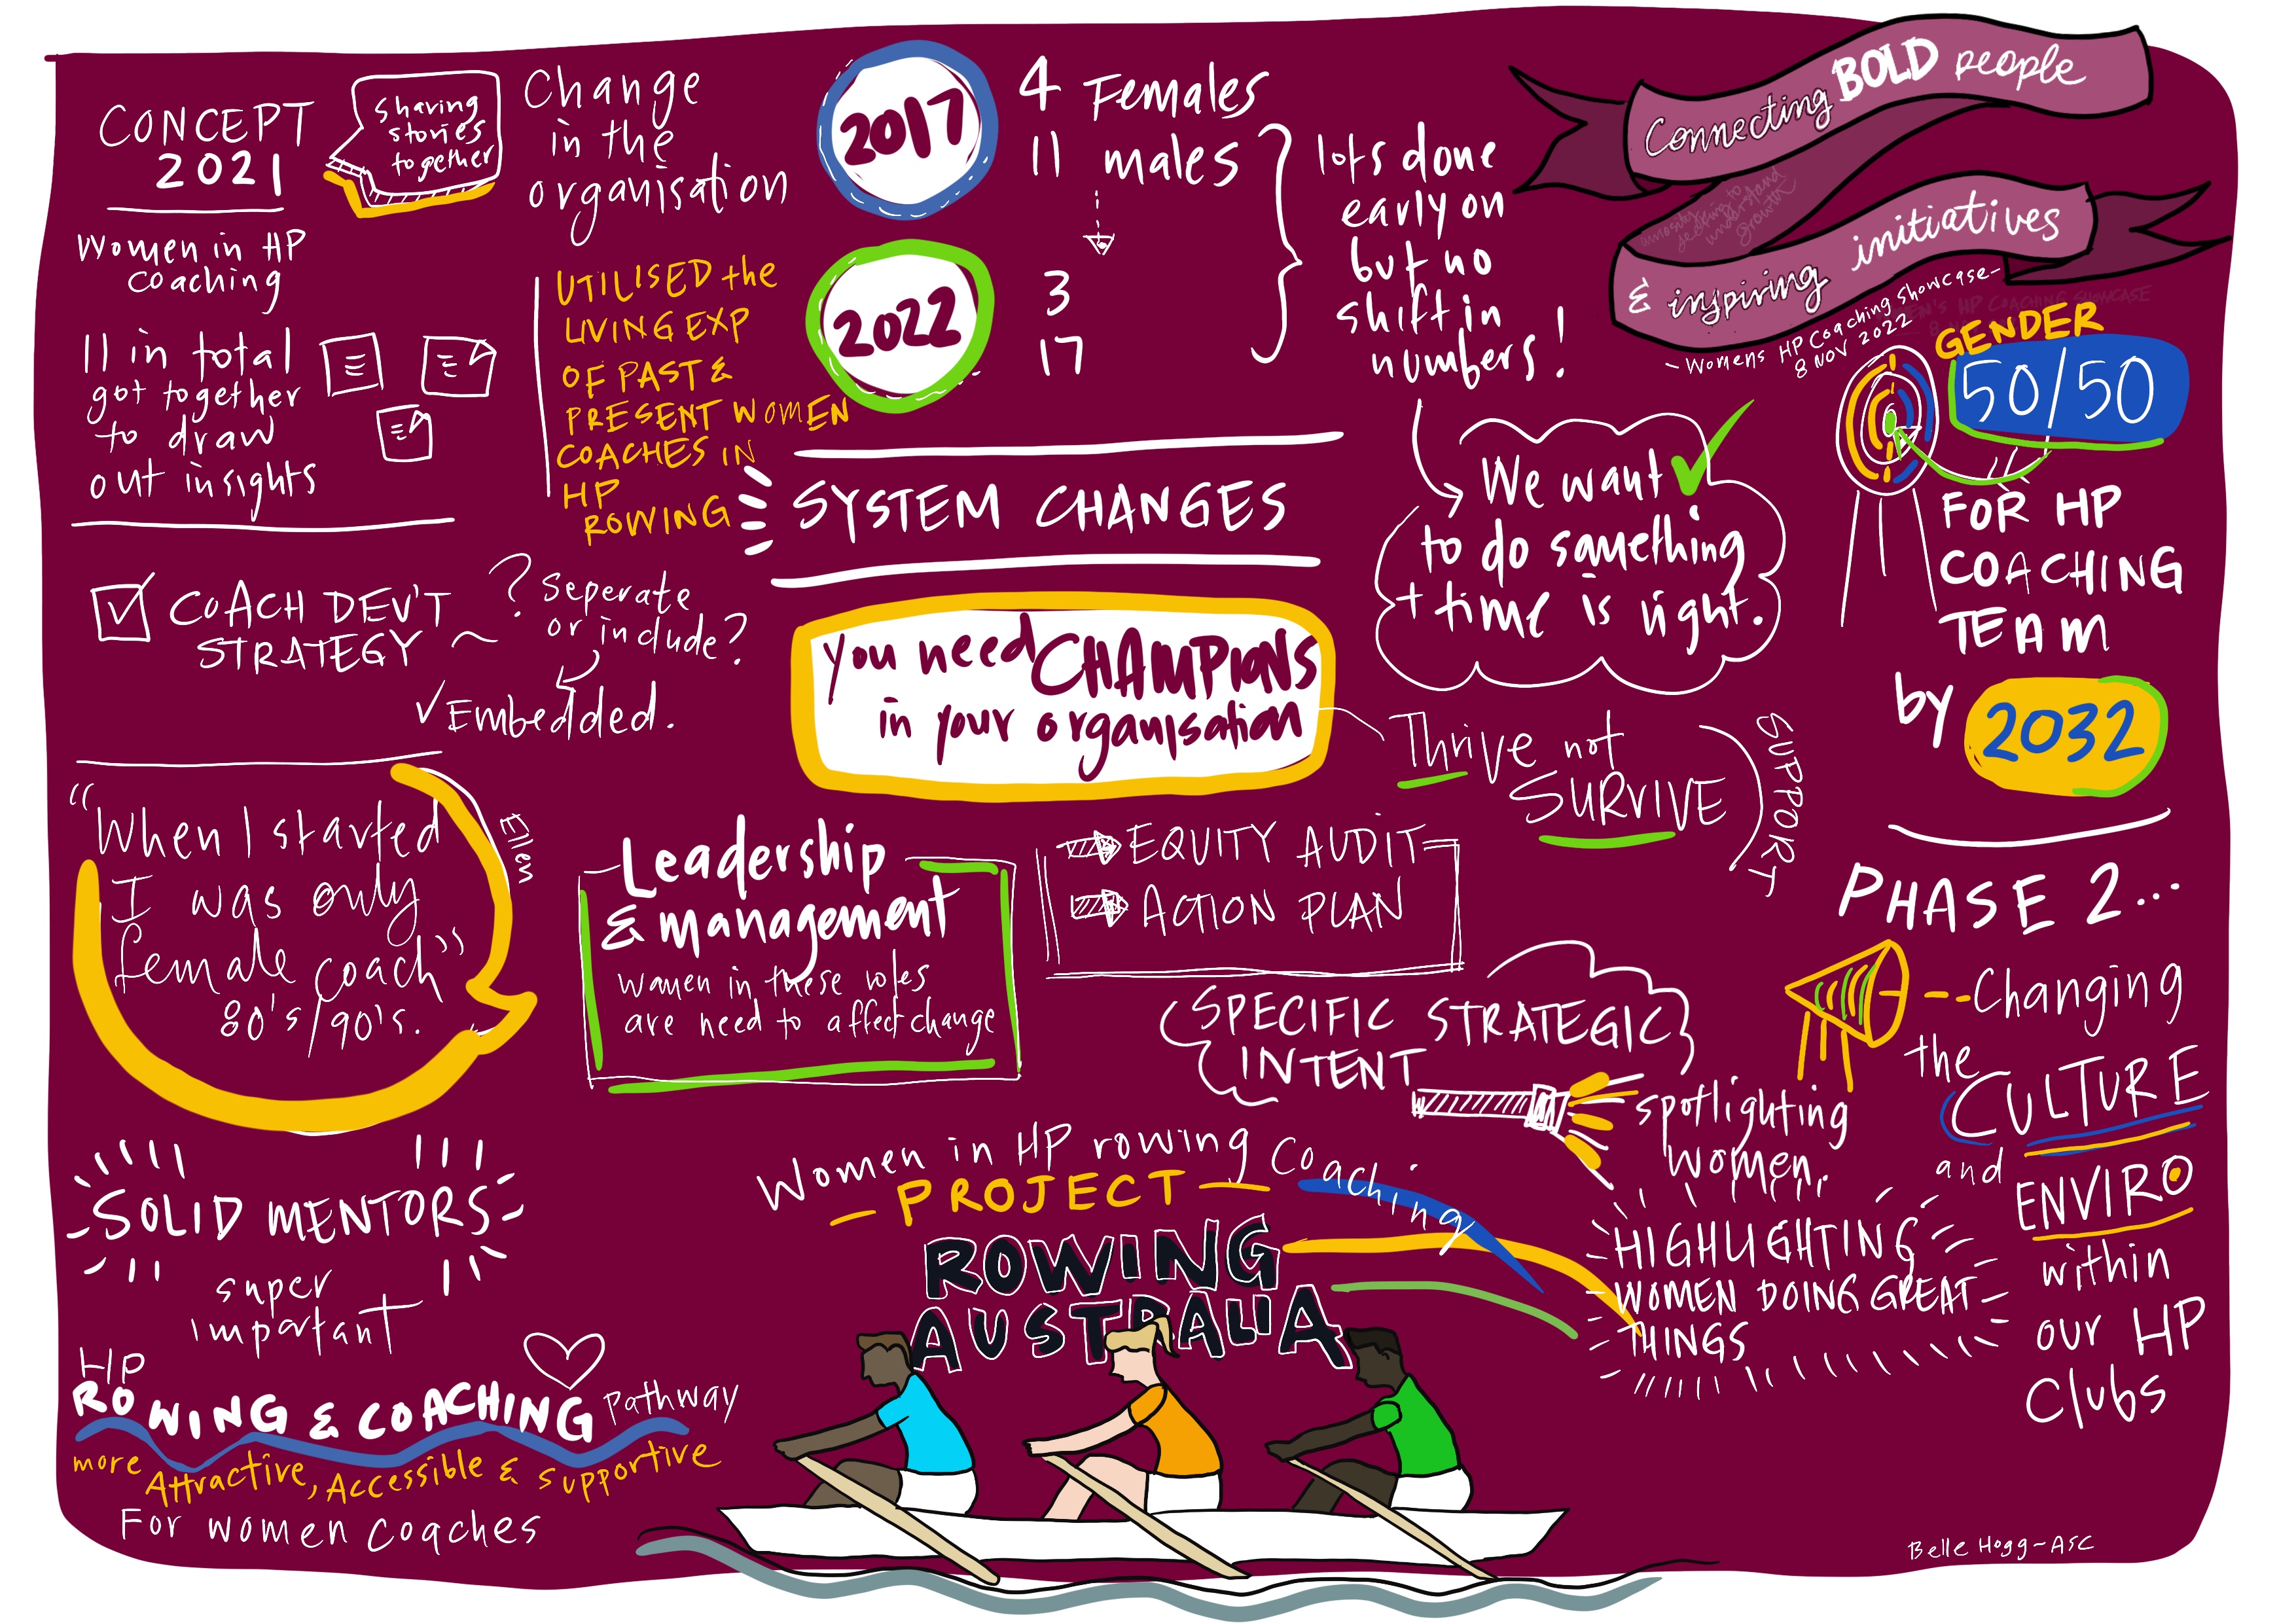 CONCEPT
2021
sharing
stories
together
Women in HP
coaching
11 in total
got together
to draw
out insights
Change
in the
organisation
UTILISED the
LIVING EXP
OF PAST &
PRESENT WOMEN
COACHES IN
HP
ROWING
2017
4 Females
11 males
2022
3
17
lots done
early on
but no
shift in
numbers!
Connecting BOLD people
& inspiring initiatives
- Womens HP Coaching Showcase -
8 NOV 2022
GENDER
50/50
FOR HP
COACHING
TEAM
by 2032
We want
to do something
+ time is right.
SYSTEM CHANGES
COACH DEV'T
STRATEGY ~
? Seperate
or include?
✓ Embedded.
you need CHAMPIONS
in your organisation
Thrive not
SURVIVE
SUPPORT
"When I started
I was only
female coach"
80's/90's.
Ellen
Leadership
& management
women in these roles
are need to affect change
EQUITY AUDIT
ACTION PLAN
SPECIFIC STRATEGIC
INTENT
spotlighting
women.
HIGHLIGHTING
WOMEN DOING GREAT
THINGS
PHASE 2...
Changing
the
CULTURE
and
ENVIRO
within
our HP
Clubs
SOLID MENTORS
super
important
HP
ROWING & COACHING pathway
more Attractive, Accessible & supportive
For women coaches
Women in HP rowing Coaching
- PROJECT -
ROWING
AUSTRALIA
Belle Hogg - ASC